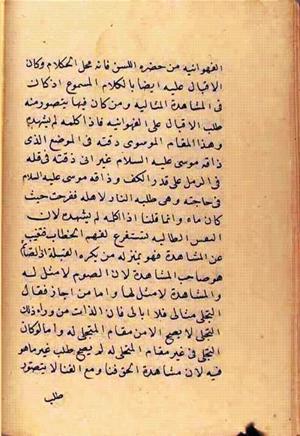 الفهوانيه من حضره اللسن فانه محل الكلام وكان
الاقبال عليه ايضا بالكلام المسموع اذ كان
فى المشاهدة المثاليه ومن كان فيها يتصور منه
طلب الاقبال على الفهوانيه فاذا كلمه لم يشهده
وهذا المقام الموسوى ذقته فى الموضع الذى
ذاقه موسى عليه السلام غير انى ذقته فى قله
فى الرمل على قدر الكف وذاقه موسى عليه السلام
فى حاجته وهى طلبه النار لاهله ففرحت حيث
كان ماء وانما قلنا اذا كلمه لم يشهده لان
النفس الطالبه تستفرغ لفهم الخطاب فتغيب
عن المشاهدة فهو بمنزله من يكره القبلة اذ لقضا
هو صاحب المشاهدة لان الصوم لا مثل له
والمشاهدة لا مثل لها واما من اجاز فقال
التجلى مثالى فلا ابالى فان الذات من وراء ذلك
التجلى لا يصح الا من مقام المتجلى له واما لو كان
التجلى فى غير مقام المتجلى له لم يصح طلب غير ما هو
فيه لان مشاهدة الحق فنا ومع الفنا لا يتصور
طلب